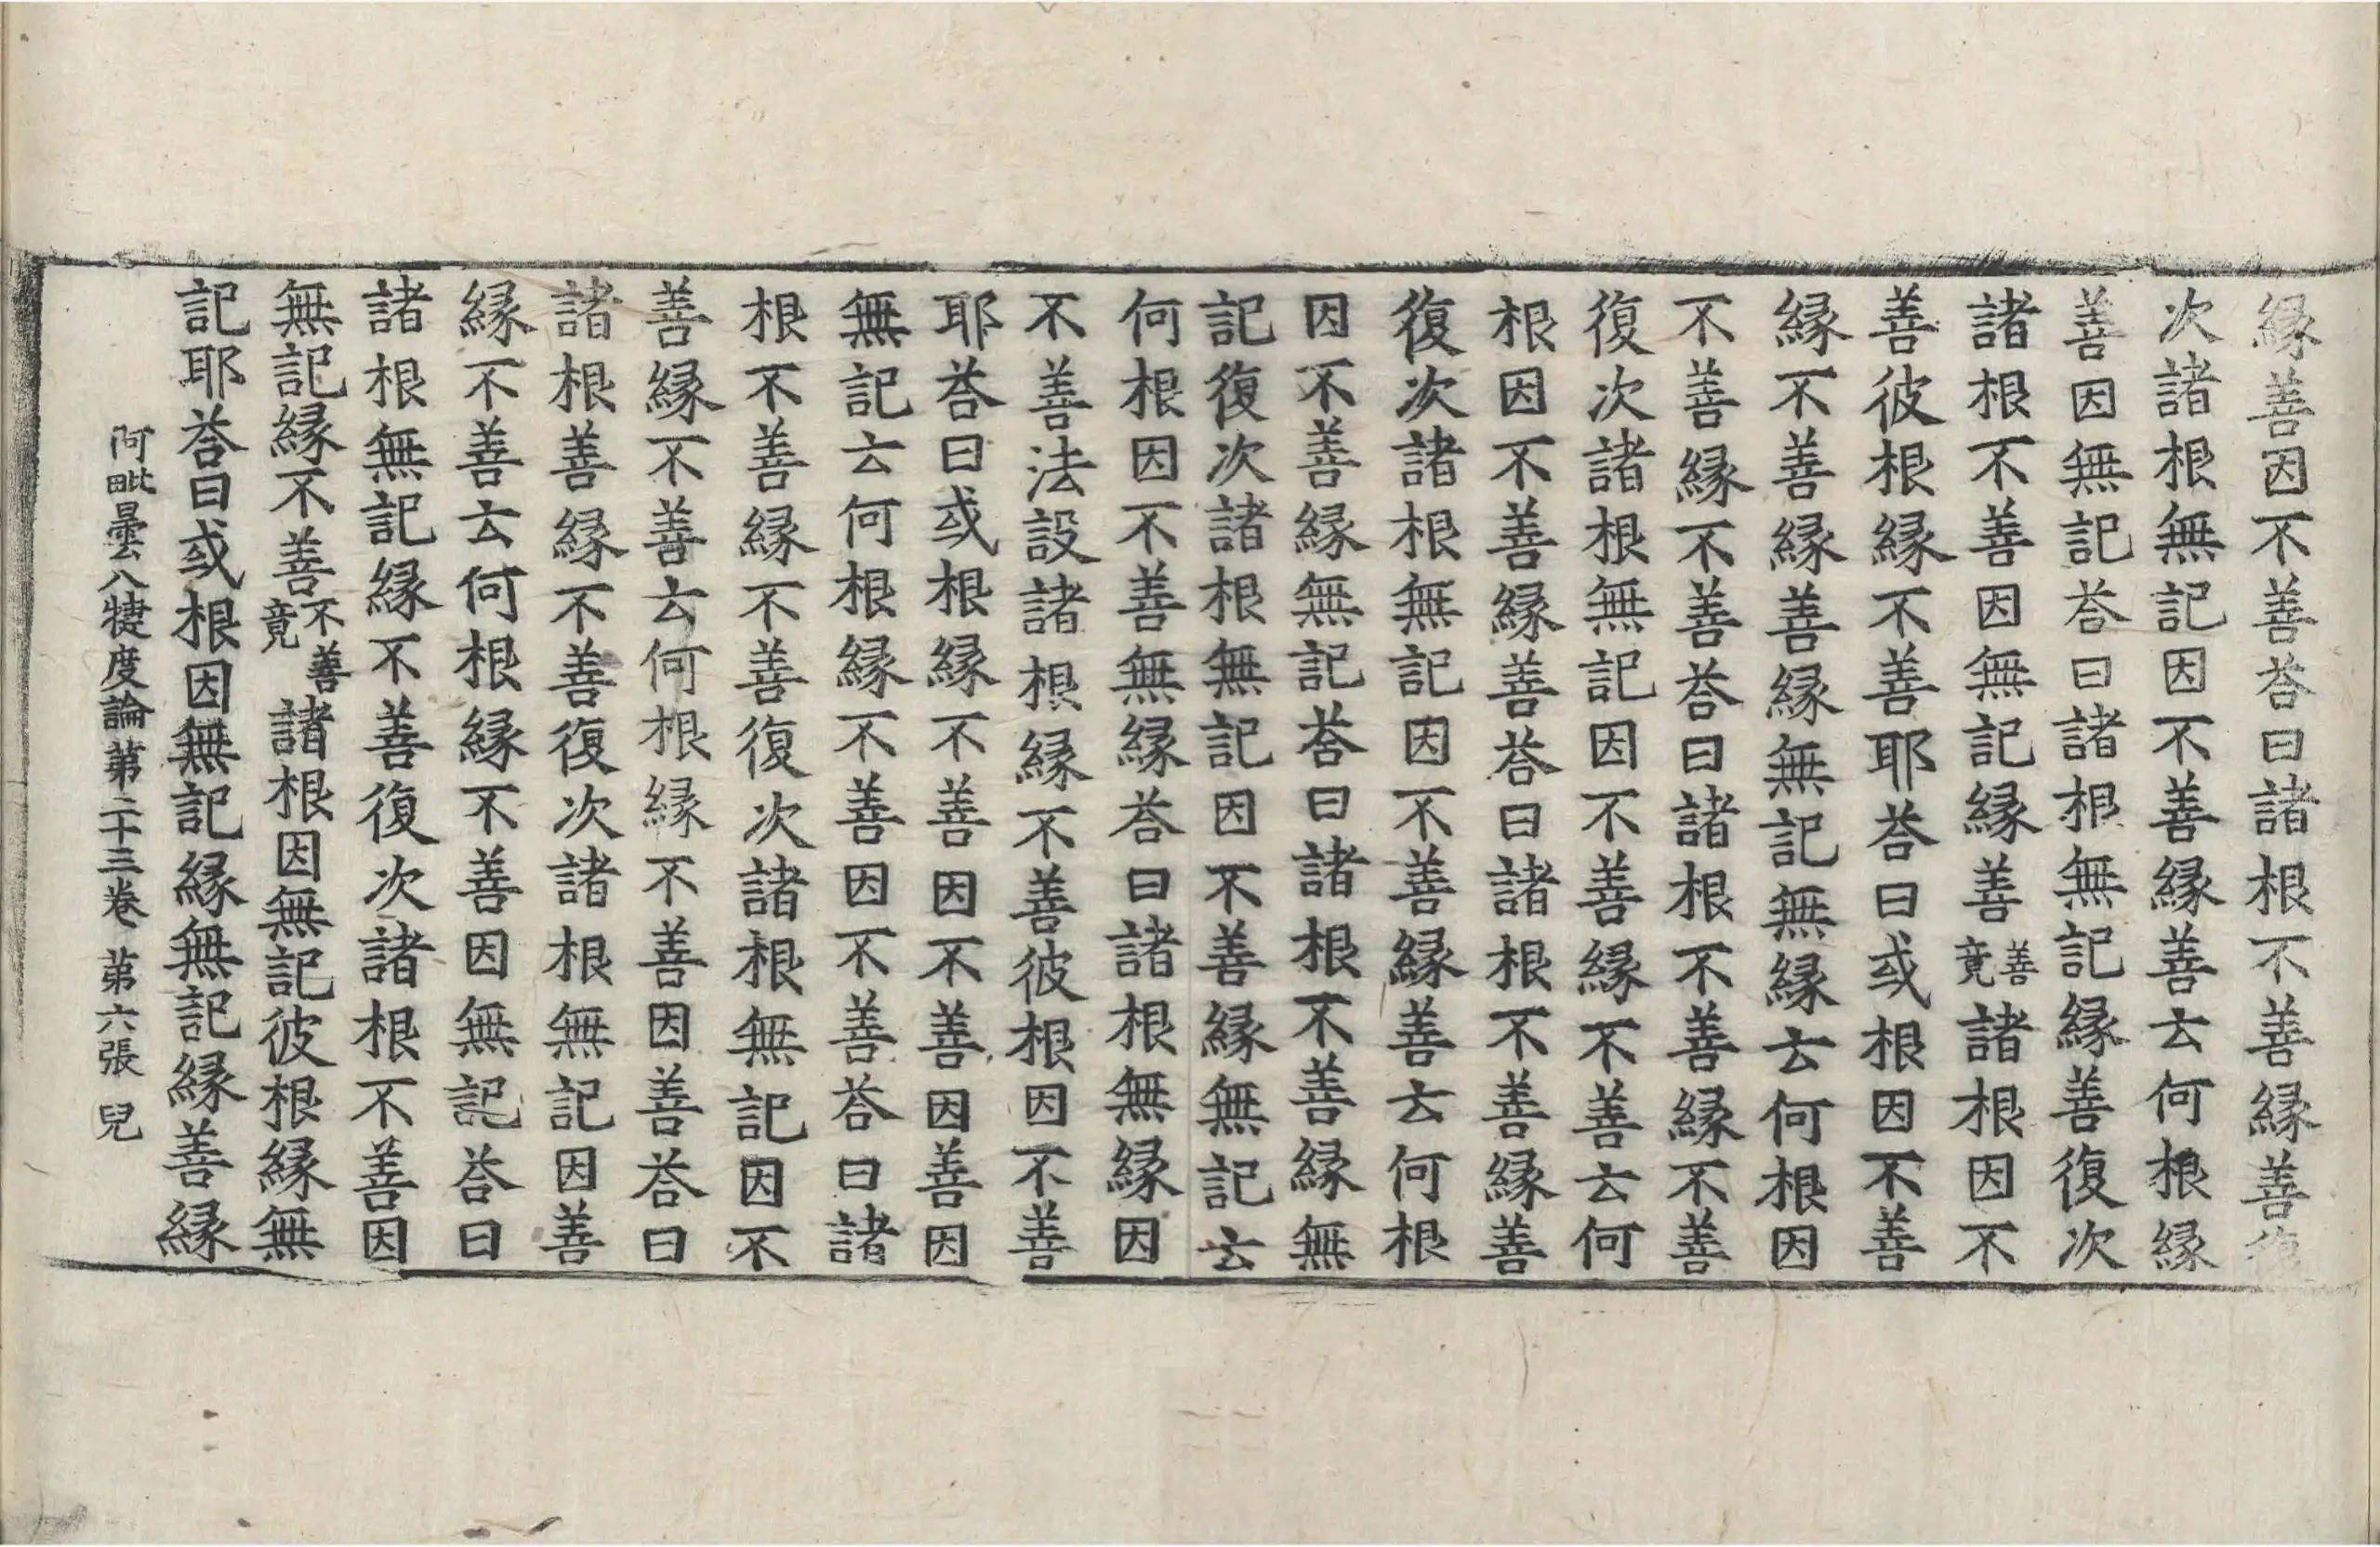 縁善因不善荅曰諸根不善縁善復
次諸根無記因不善縁善云何根縁
善因無記荅曰諸根無記縁善復次
諸根不善因無記縁善善竟諸根因不
善彼根縁不善耶荅曰或根因不善
縁不善縁善縁無記無縁云何根因
不善縁不善荅曰諸根不善縁不善
復次諸根無記因不善縁不善云何
根因不善縁善荅曰諸根不善縁善
復次諸根無記因不善縁善云何根
因不善縁無記荅曰諸根不善縁無
記復次諸根無記因不善縁無記云
何根因不善無縁荅曰諸根無縁因
不善法設諸根縁不善彼根因不善
耶荅曰或根縁不善因不善因善因
無記云何根縁不善因不善荅曰諸
根不善縁不善復次諸根無記因不
善縁不善云何根縁不善因善荅曰
諸根善縁不善復次諸根無記因善
縁不善云何根縁不善因無記荅曰
諸根無記縁不善復次諸根不善因
無記縁不善不善竟諸根因無記彼根縁無
記耶荅曰或根因無記縁無記縁善縁
阿毗曇八犍度論第二十三卷 第六張 兒